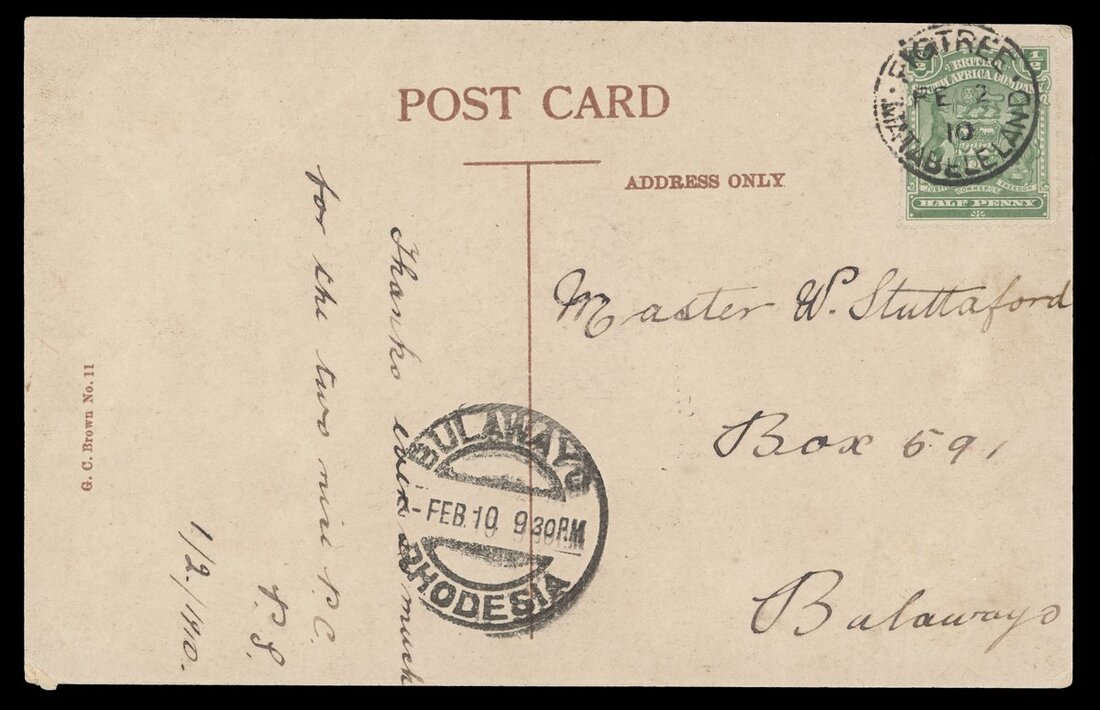 POST CARD
ADDRESS ONLY
FIGTREE
FE 2
10
MATABELELAND
1/2
BRITISH
SOUTH AFRICA COMPANY
JUSTICE COMMERCE FREEDOM
HALF PENNY
Master W. Stuttaford
Box 591
Bulawayo
Thanks ever so much
for the two nice P.C.
P.S.
1/2/1910.
BULAWAYO
- FEB.10 9 30 P.M
RHODESIA
G. C. Brown No. 11